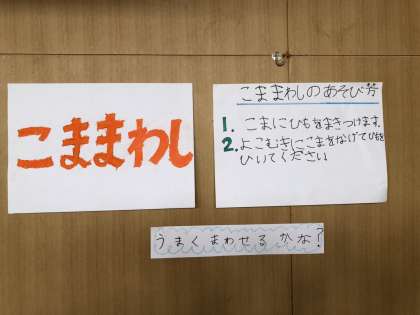 こままわし
こままわしのあそび方
1. こまにひもをまきつけます。
2. よこむきにこまをなげてひもを
ひいてください
うまくまわせるかな?